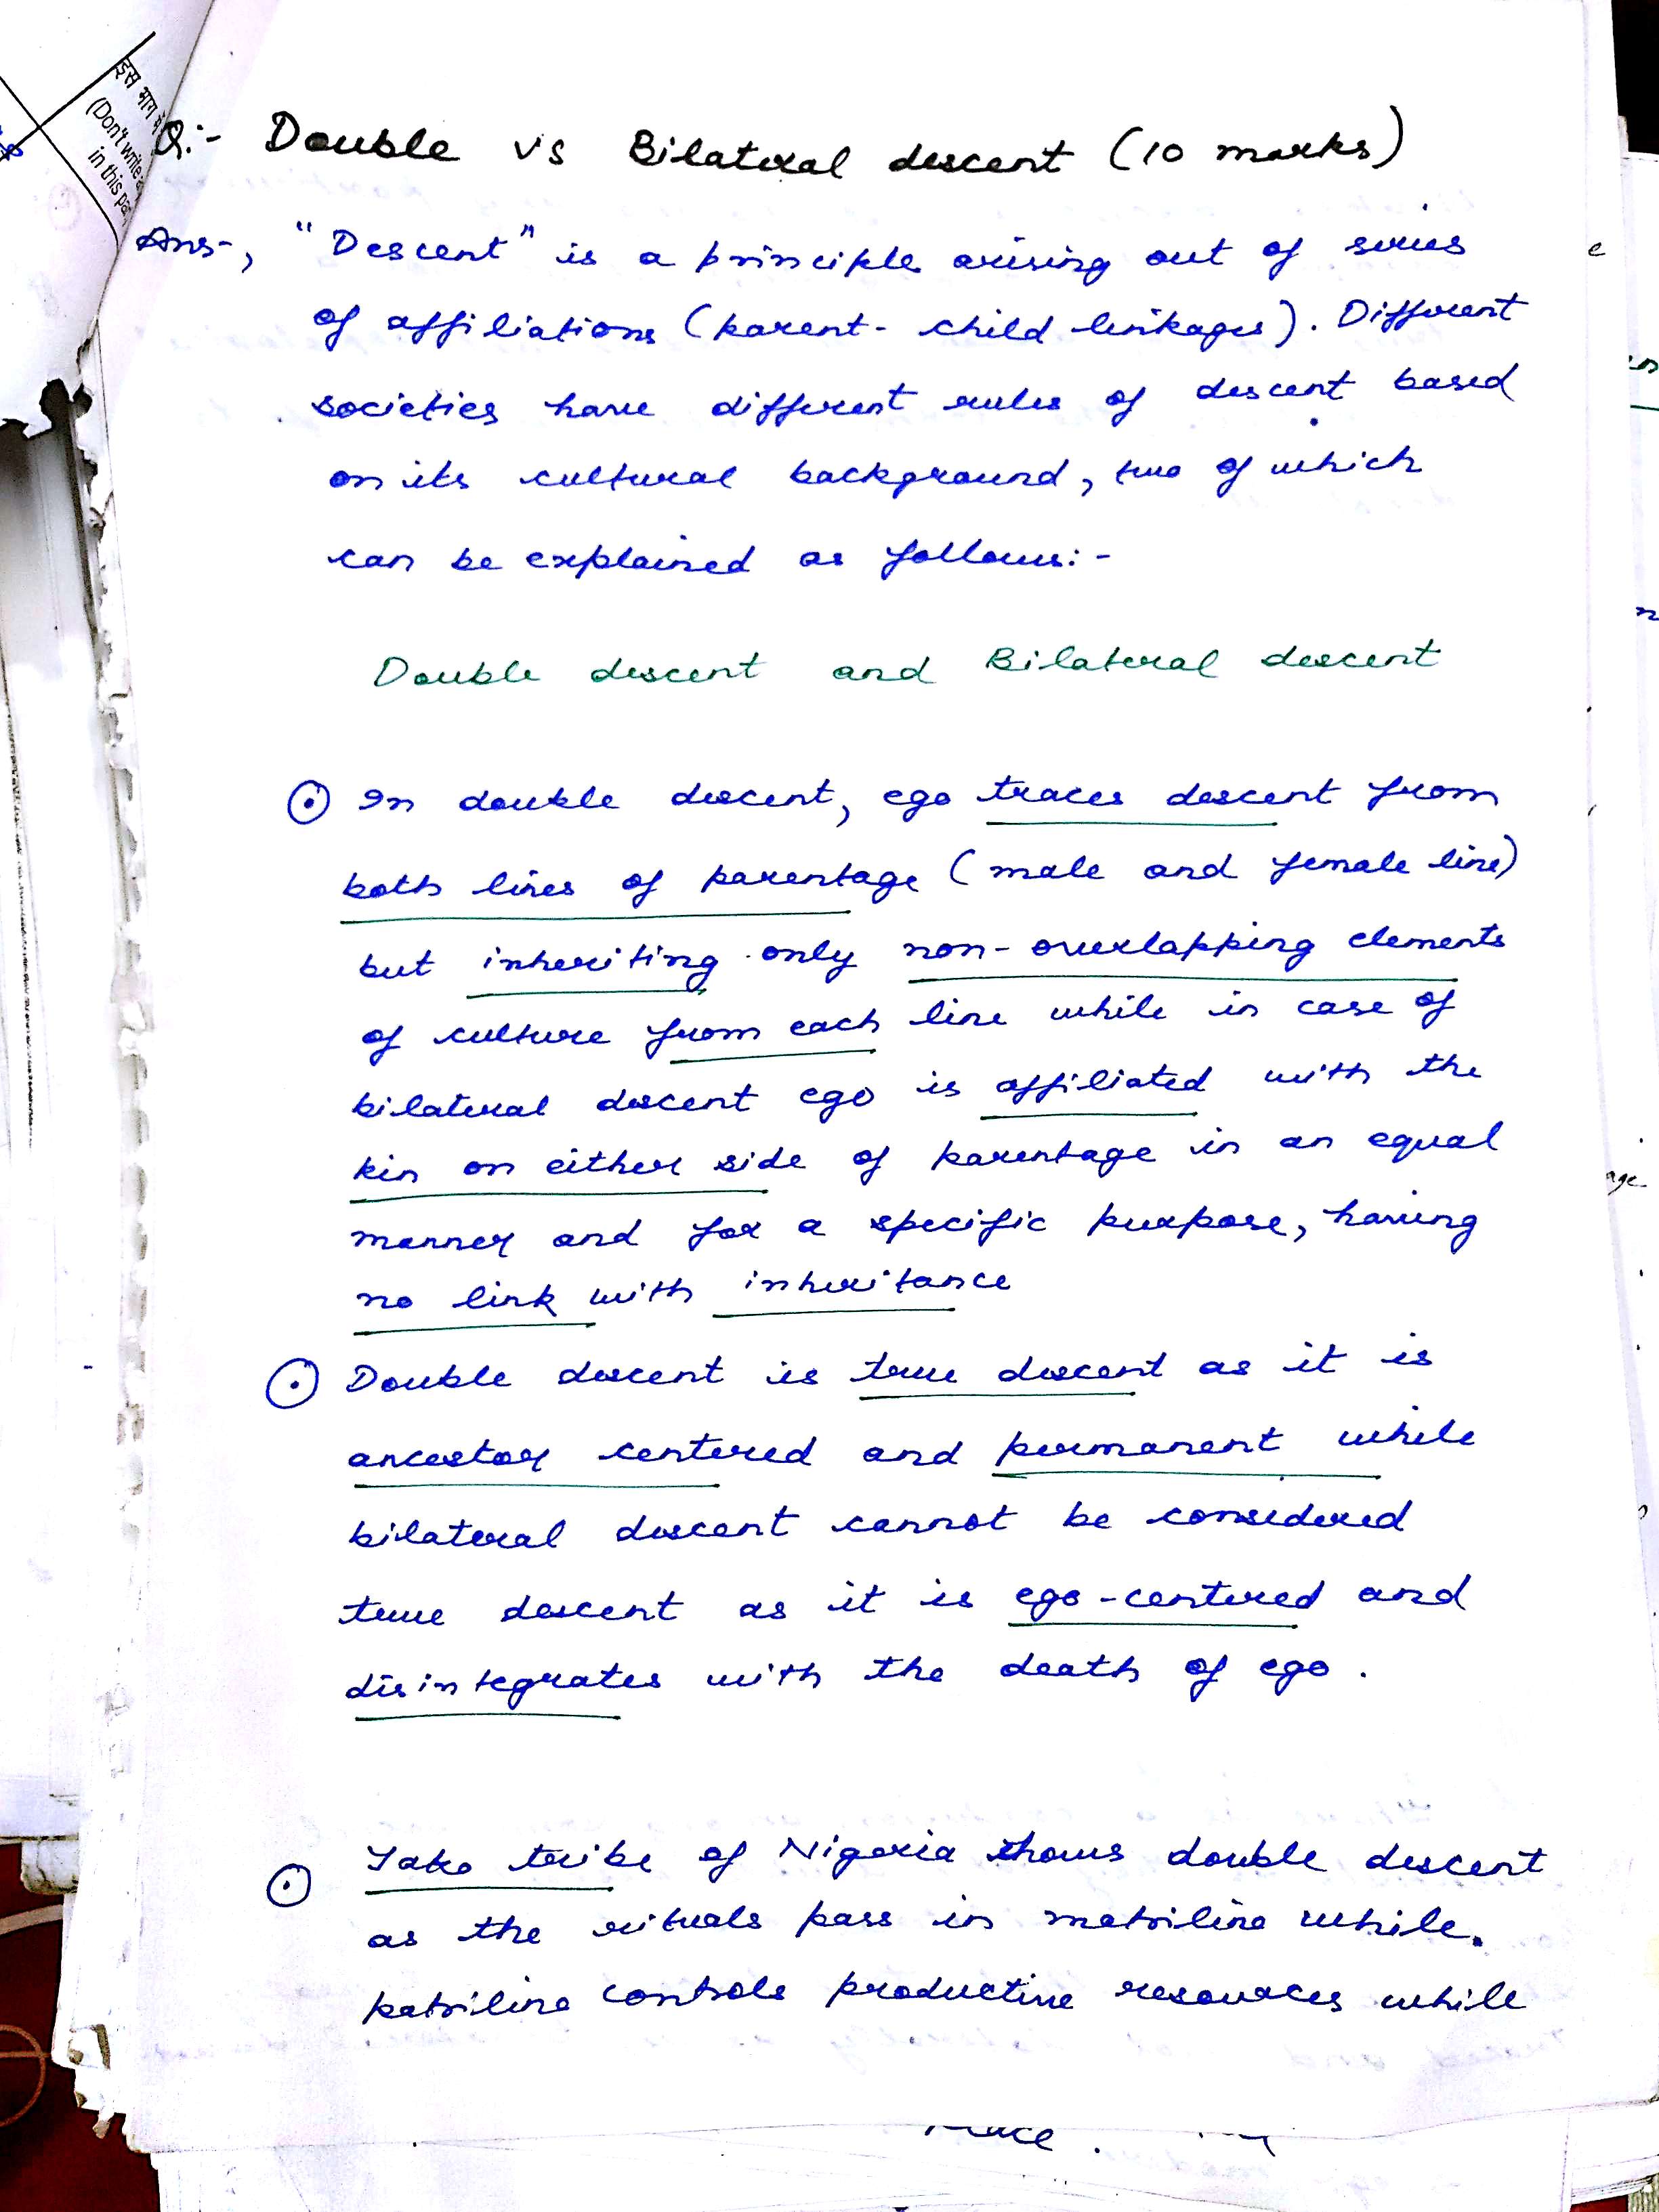 इस भाग में
(Don't write
in this pa
Q:- Double vs Bilateral descent (10 marks)
Ans-, "Descent" is a principle arising out of series
of affiliations (parent-child linkages). Different
societies have different rules of descent based
on its cultural background, two of which
can be explained as follows:-
Double descent and Bilateral descent
⊙ In double descent, ego traces descent from
both lines of parentage (male and female line)
but inheriting only non-overlapping elements
of culture from each line while in case of
bilateral descent ego is affiliated with the
kin on either side of parentage in an equal
manner and for a specific purpose, having
no link with inheritance
⊙ Double descent is true descent as it is
ancestor centered and permanent while
bilateral descent cannot be considered
true descent as it is ego-centered and
disintegrates with the death of ego.
⊙ Yako tribe of Nigeria shows double descent
as the rituals pass in matriline while.
patriline controls productive resources while